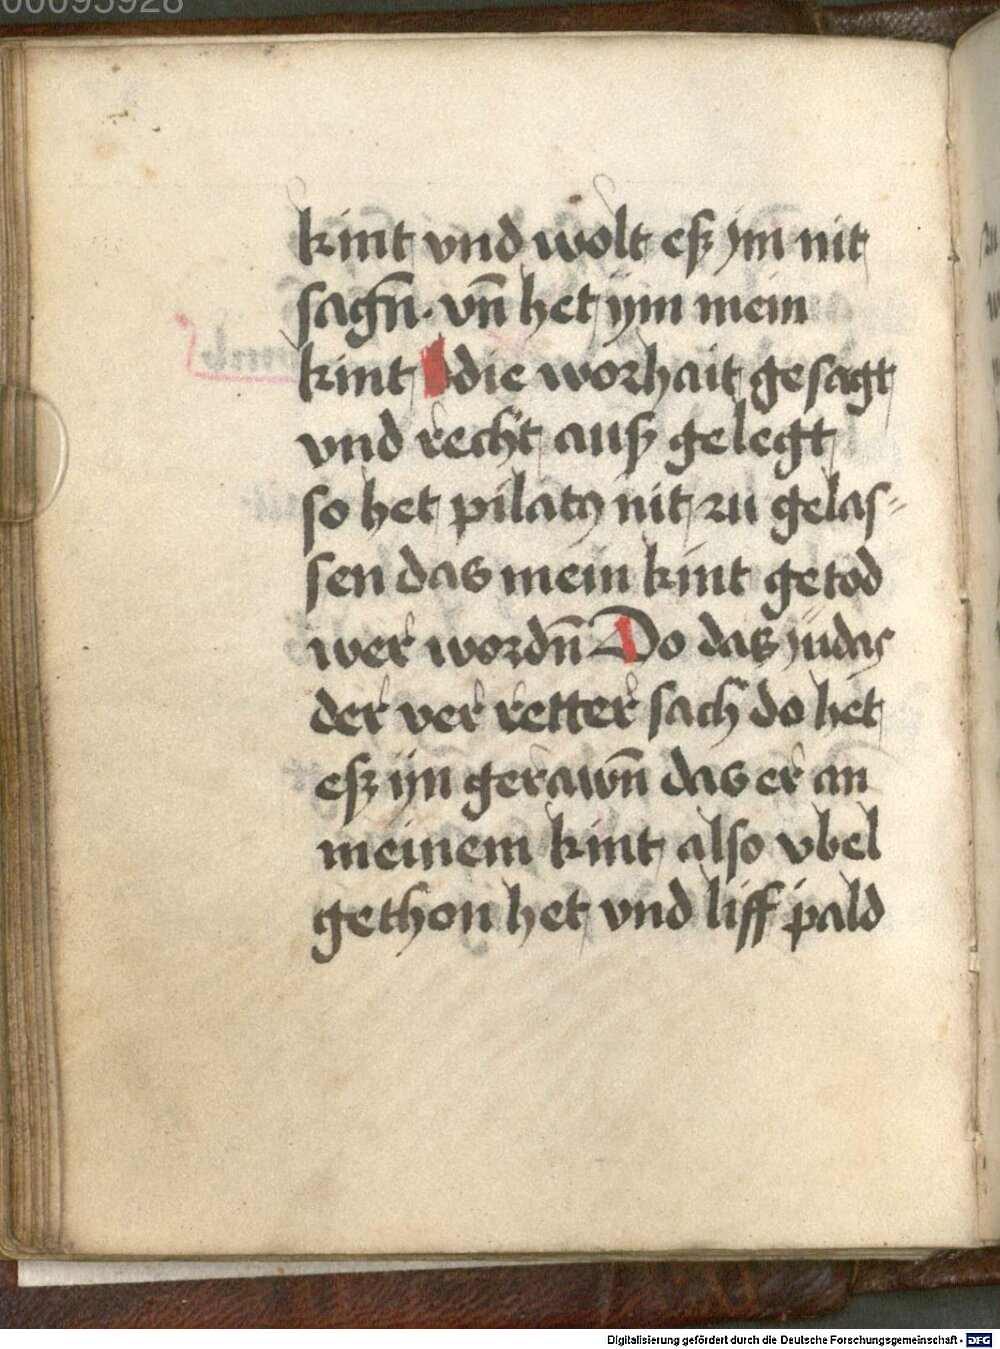 00095928
kint vnd wolt eß ym nit
sagn̄. vn̄ het ym mein
kint die worhait gesagt
vnd recht auß gelegt
so het pilatꝰ nit zu gelas⸗
sen das mein kint getod
wer wordn̄ Do das judas
der ver retter sach do het
eß yn gerawn̄ das er an
meinem kint also vbel
gethon het vnd liff pald
Digitalisierung gefördert durch die Deutsche Forschungsgemeinschaft - DFG